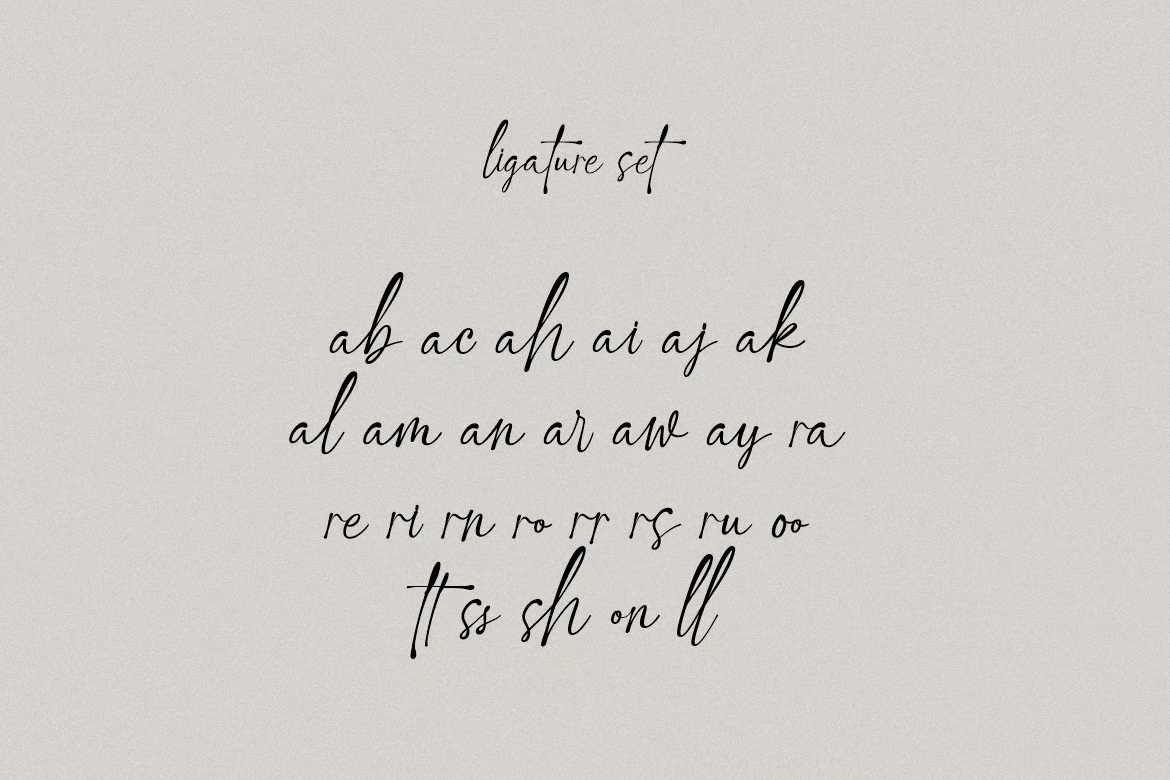 ligature set
ab ac ah ai aj ak
al am an ar aw ay ra
re ri rn ro rr rs ru oo
tt ss sh on ll